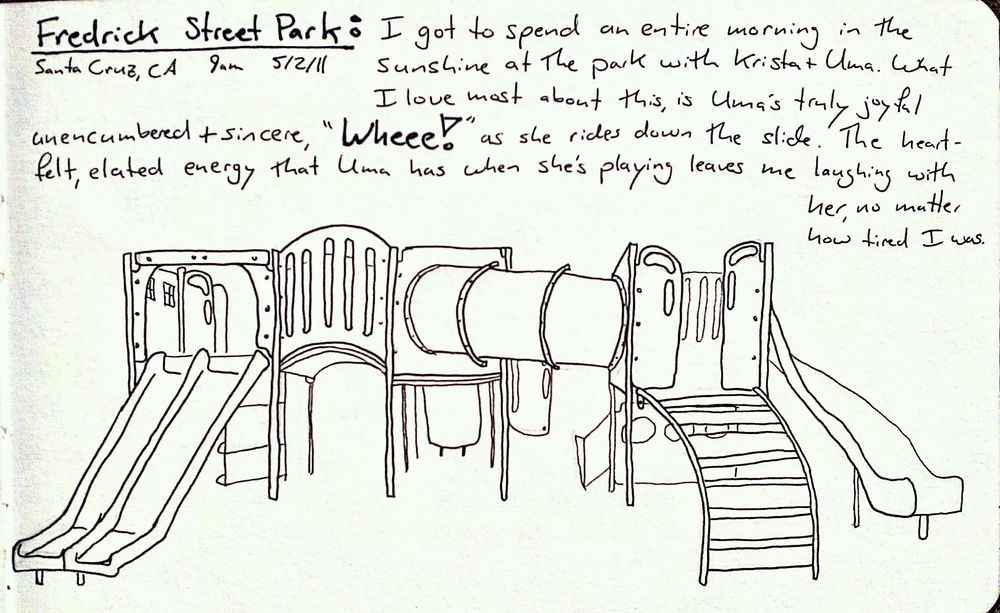 Fredrick Street Park: I got to spend an entire morning in the
Santa Cruz, CA 9am 5/2/11 sunshine at the park with Krista + Uma. What
I love most about this, is Uma's truly joyful
unencumbered + sincere, "Wheee!" as she rides down the slide. The heart-
felt, elated energy that Uma has when she's playing leaves me laughing with
her, no matter
how tired I was.